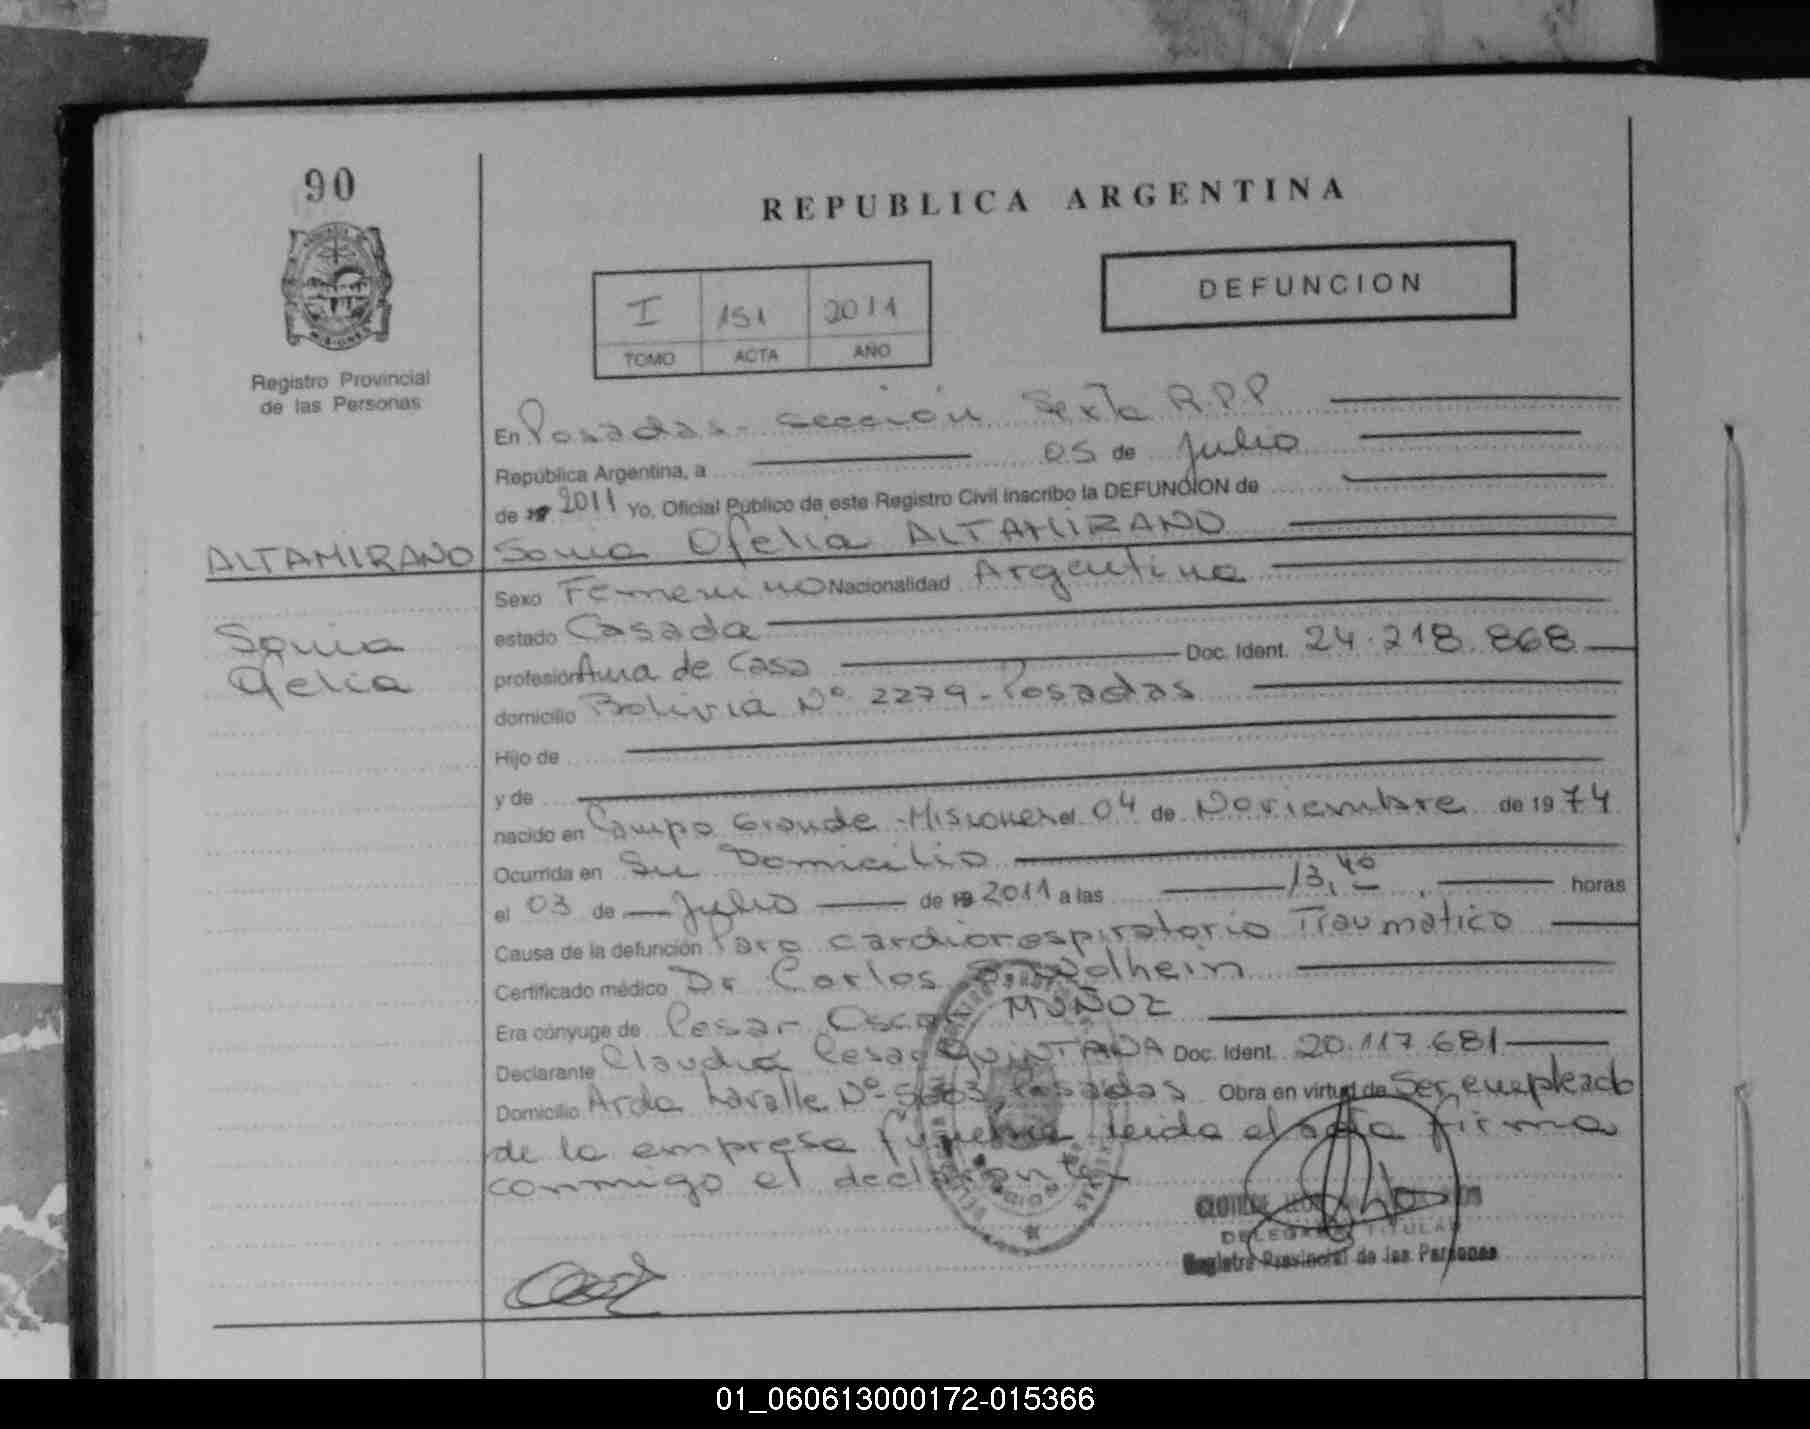 90
REPUBLICA ARGENTINA
DEFUNCION
I 151 2011
TOMO ACTA AÑO
Registro Provincial
de las Personas
En Posadas - sección Sexta R.P.P
República Argentina, a 05 de Julio
de 19 2011 Yo, Oficial Público de este Registro Civil inscribo la DEFUNCION de
ALTAMIRANO Sonia Ofelia ALTAMIRANO
Sexo Femenino Nacionalidad Argentina
Sonia
Ofelia
estado Casada
profesión Ama de Casa Doc. Ident. 24.218.868
domicilio Bolivia Nº 2279 - Posadas
Hijo de
y de
nacido en Campo Grande - Misiones el 04 de Noviembre de 1974
Ocurrida en Su Domicilio
el 03 de Julio de 19 2011 a las 13,40 horas
Causa de la defunción Paro cardiorespiratorio Traumático
Certificado médico Dr Carlos Wolhein
Era cónyuge de Cesar Oscar MUÑOZ
Declarante Claudio Cesar QUINTANA Doc. Ident. 20.117.681
Domicilio Avda Lavalle Nº Posadas Obra en virtud de Ser empleado
de la empresa funebre leida el acta firma
conmigo el declarante
DELEGADA TITULAR
Registro Provincial de las Personas
01_060613000172-015366